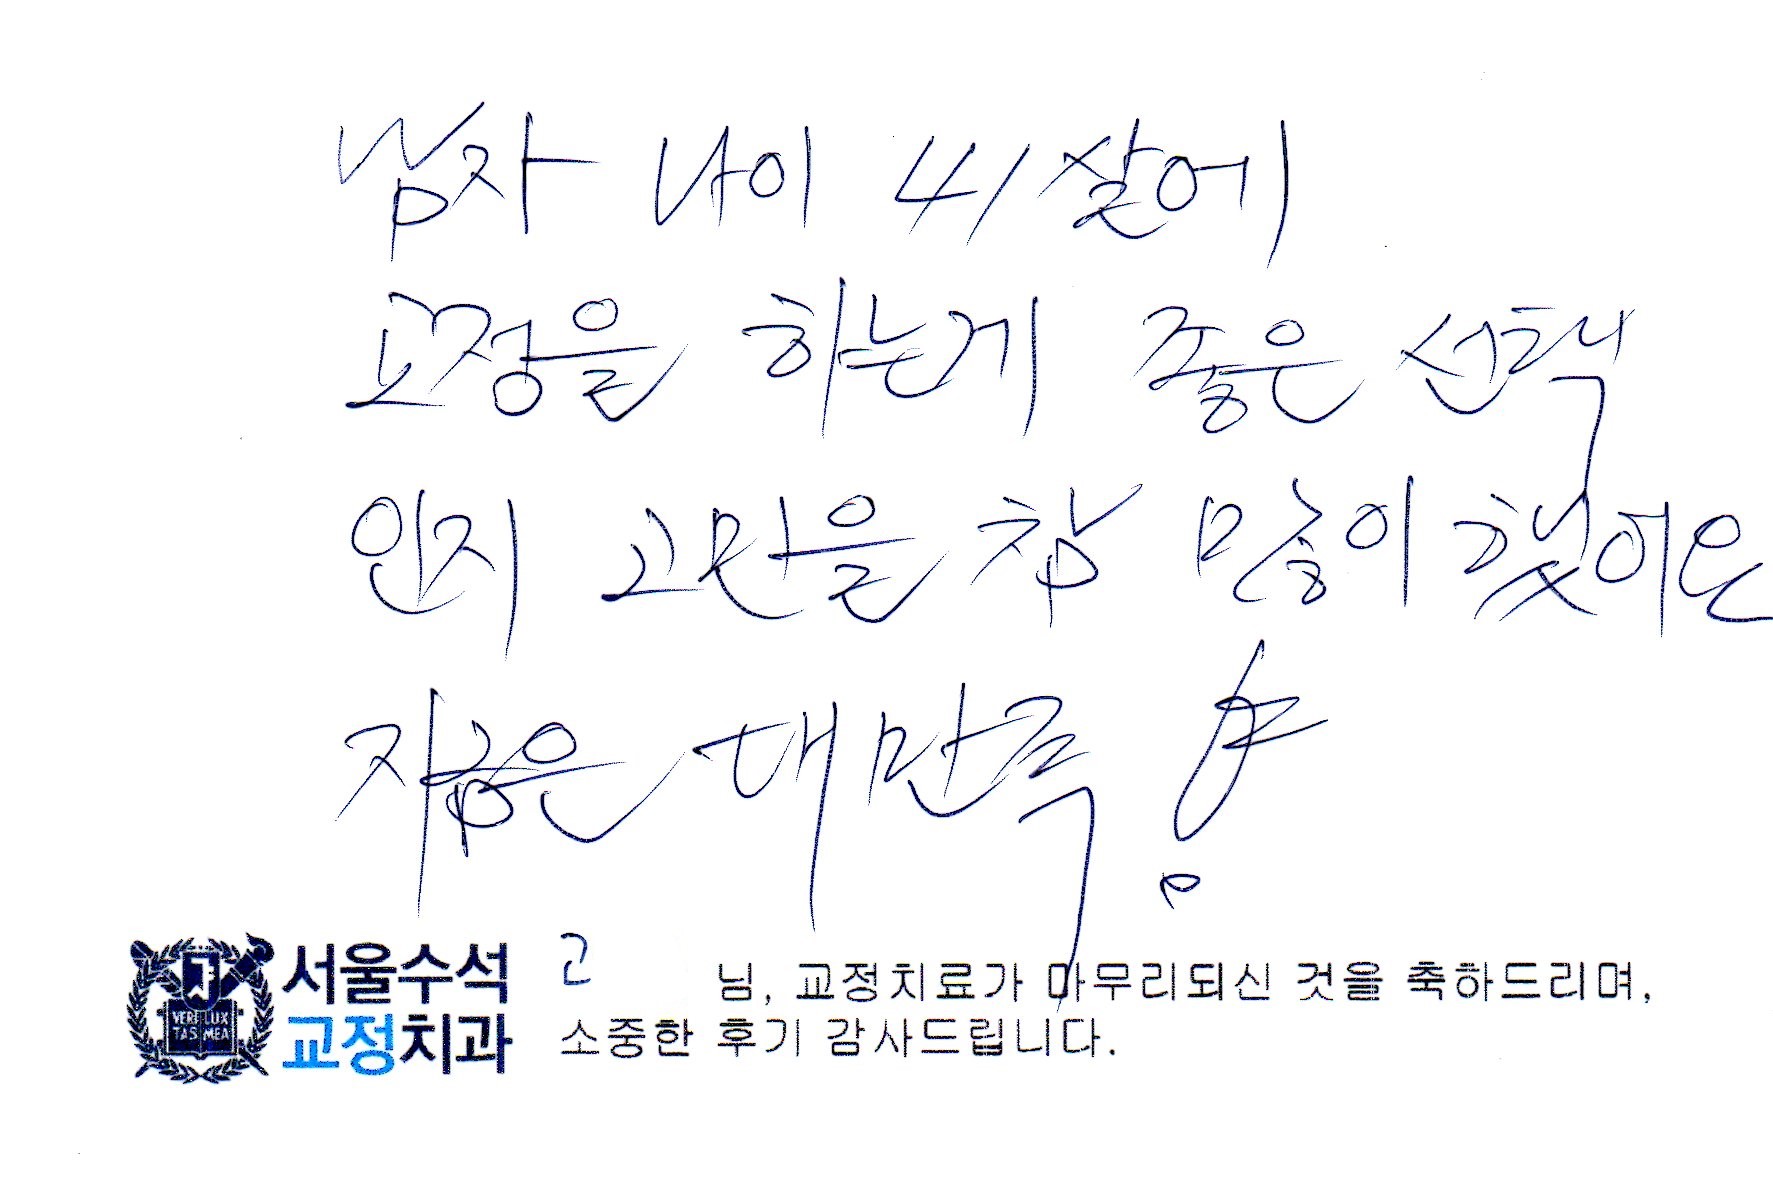 남자 나이 41살에
교정을 하는게 좋은 선택
인지 고민을 참 많이 했어요
지금은 대만족!
서울수석
교정치과
VERI LUX
TAS MEA
고 님, 교정치료가 마무리되신 것을 축하드리며,
소중한 후기 감사드립니다.